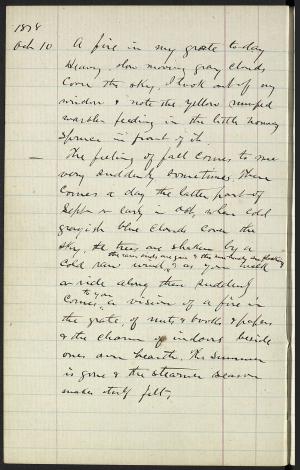 1878
Oct 10 A fire in my grate to-day
Heavy, slow moving gray clouds
cover the sky. I look out of my
window & note the yellow rumped
warbler feeding in the little Norway
Spruce in front of it.
— The feeling of fall comes to me
very suddenly sometimes. There
comes a day the latter part of
Sept or early in Oct, when cold
grayish blue clouds cover the
sky, the trees are shaken by a
cold raw wind, & as you walk
or ride along then suddenly
comes to you a vision of a fire in
the grate, of nuts & books & papers
& the charm of indoors beside
ones own hearth. The summer
is gone & the sterner season
makes itself felt,